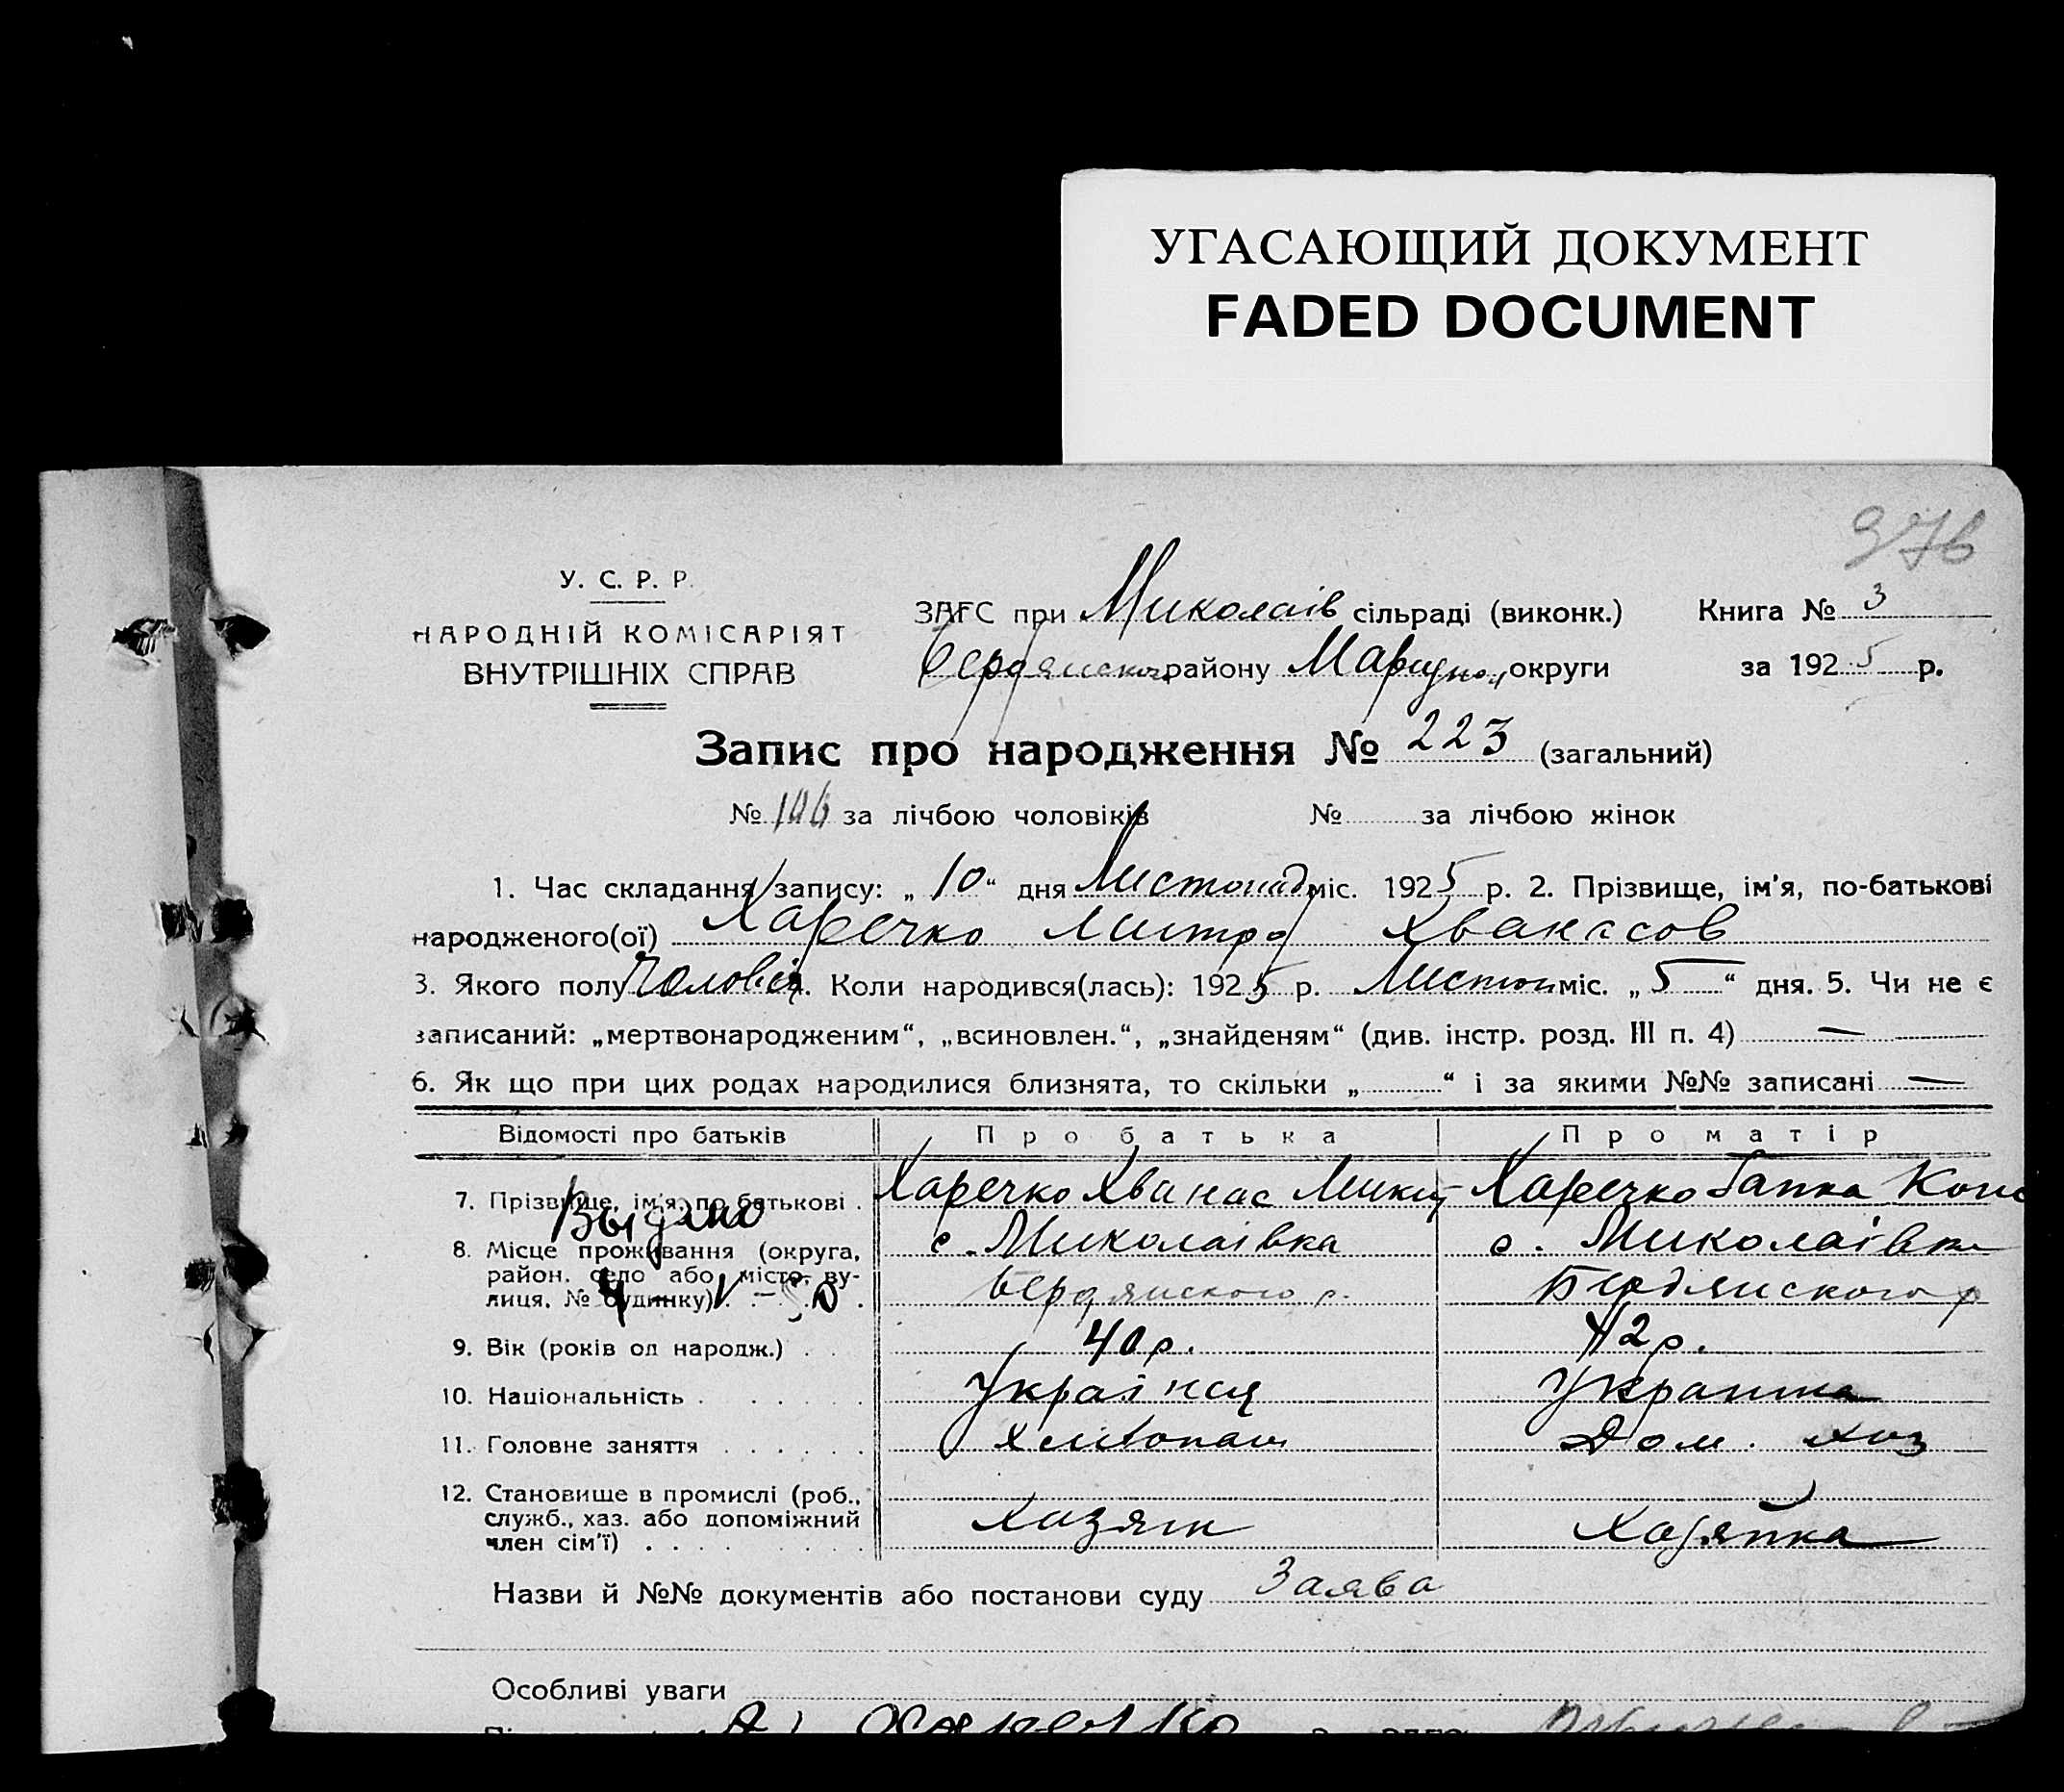 УГАСАЮЩИЙ ДОКУМЕНТ
FADED DOCUMENT
376
У. С. Р. Р.
НАРОДНІЙ КОМІСАРІЯТ
ВНУТРІШНІХ СПРАВ
ЗАГС при Миколаїв сільраді (виконк.) Книга № 3
Бердянського району Маріупол. округи за 1925 р.
Запис про народження № 223 (загальний)
№ 106 за лічбою чоловіків № за лічбою жінок
1. Час складання запису: „10“ дня Листопад міс. 1925 р. 2. Прізвище, ім’я, по-батькові
народженого(ої) Харечко Митро Хванасов
3. Якого полу Чоловіч. Коли народився(лась): 1925 р. Листоп міс. „5“ дня. 5. Чи не є
записаний: „мертвонародженим“, „всиновлен.“, „знайденям“ (див. інстр. розд. III п. 4) —
6. Як що при цих родах народилися близнята, то скільки „ “ і за якими №№ записані —
Відомості про батьків Про батька Про матір
7. Прізвище, ім’я, по батькові . Харечко Хванас Микит Харечко Ганна
Выдано
8. Місце проживання (округа, район. село або місто, вулиця, № будинку) с. Миколаівка с. Миколаівка
Бердянського р. Бердянського р
4 – V – 50
9. Вік (років од народж.) . . 40 р. 42 р.
10. Національність . . . . . . Українец Украинка
11. Головне заняття . . . . . . Хлібопаш Дом. хоз
12. Становище в промислі (роб., служб., хаз. або допоміжний член сім’ї) . . . . Хазяин Хазяйка
Назви й №№ документів або постанови суду Заява
Особливі уваги
Харечко